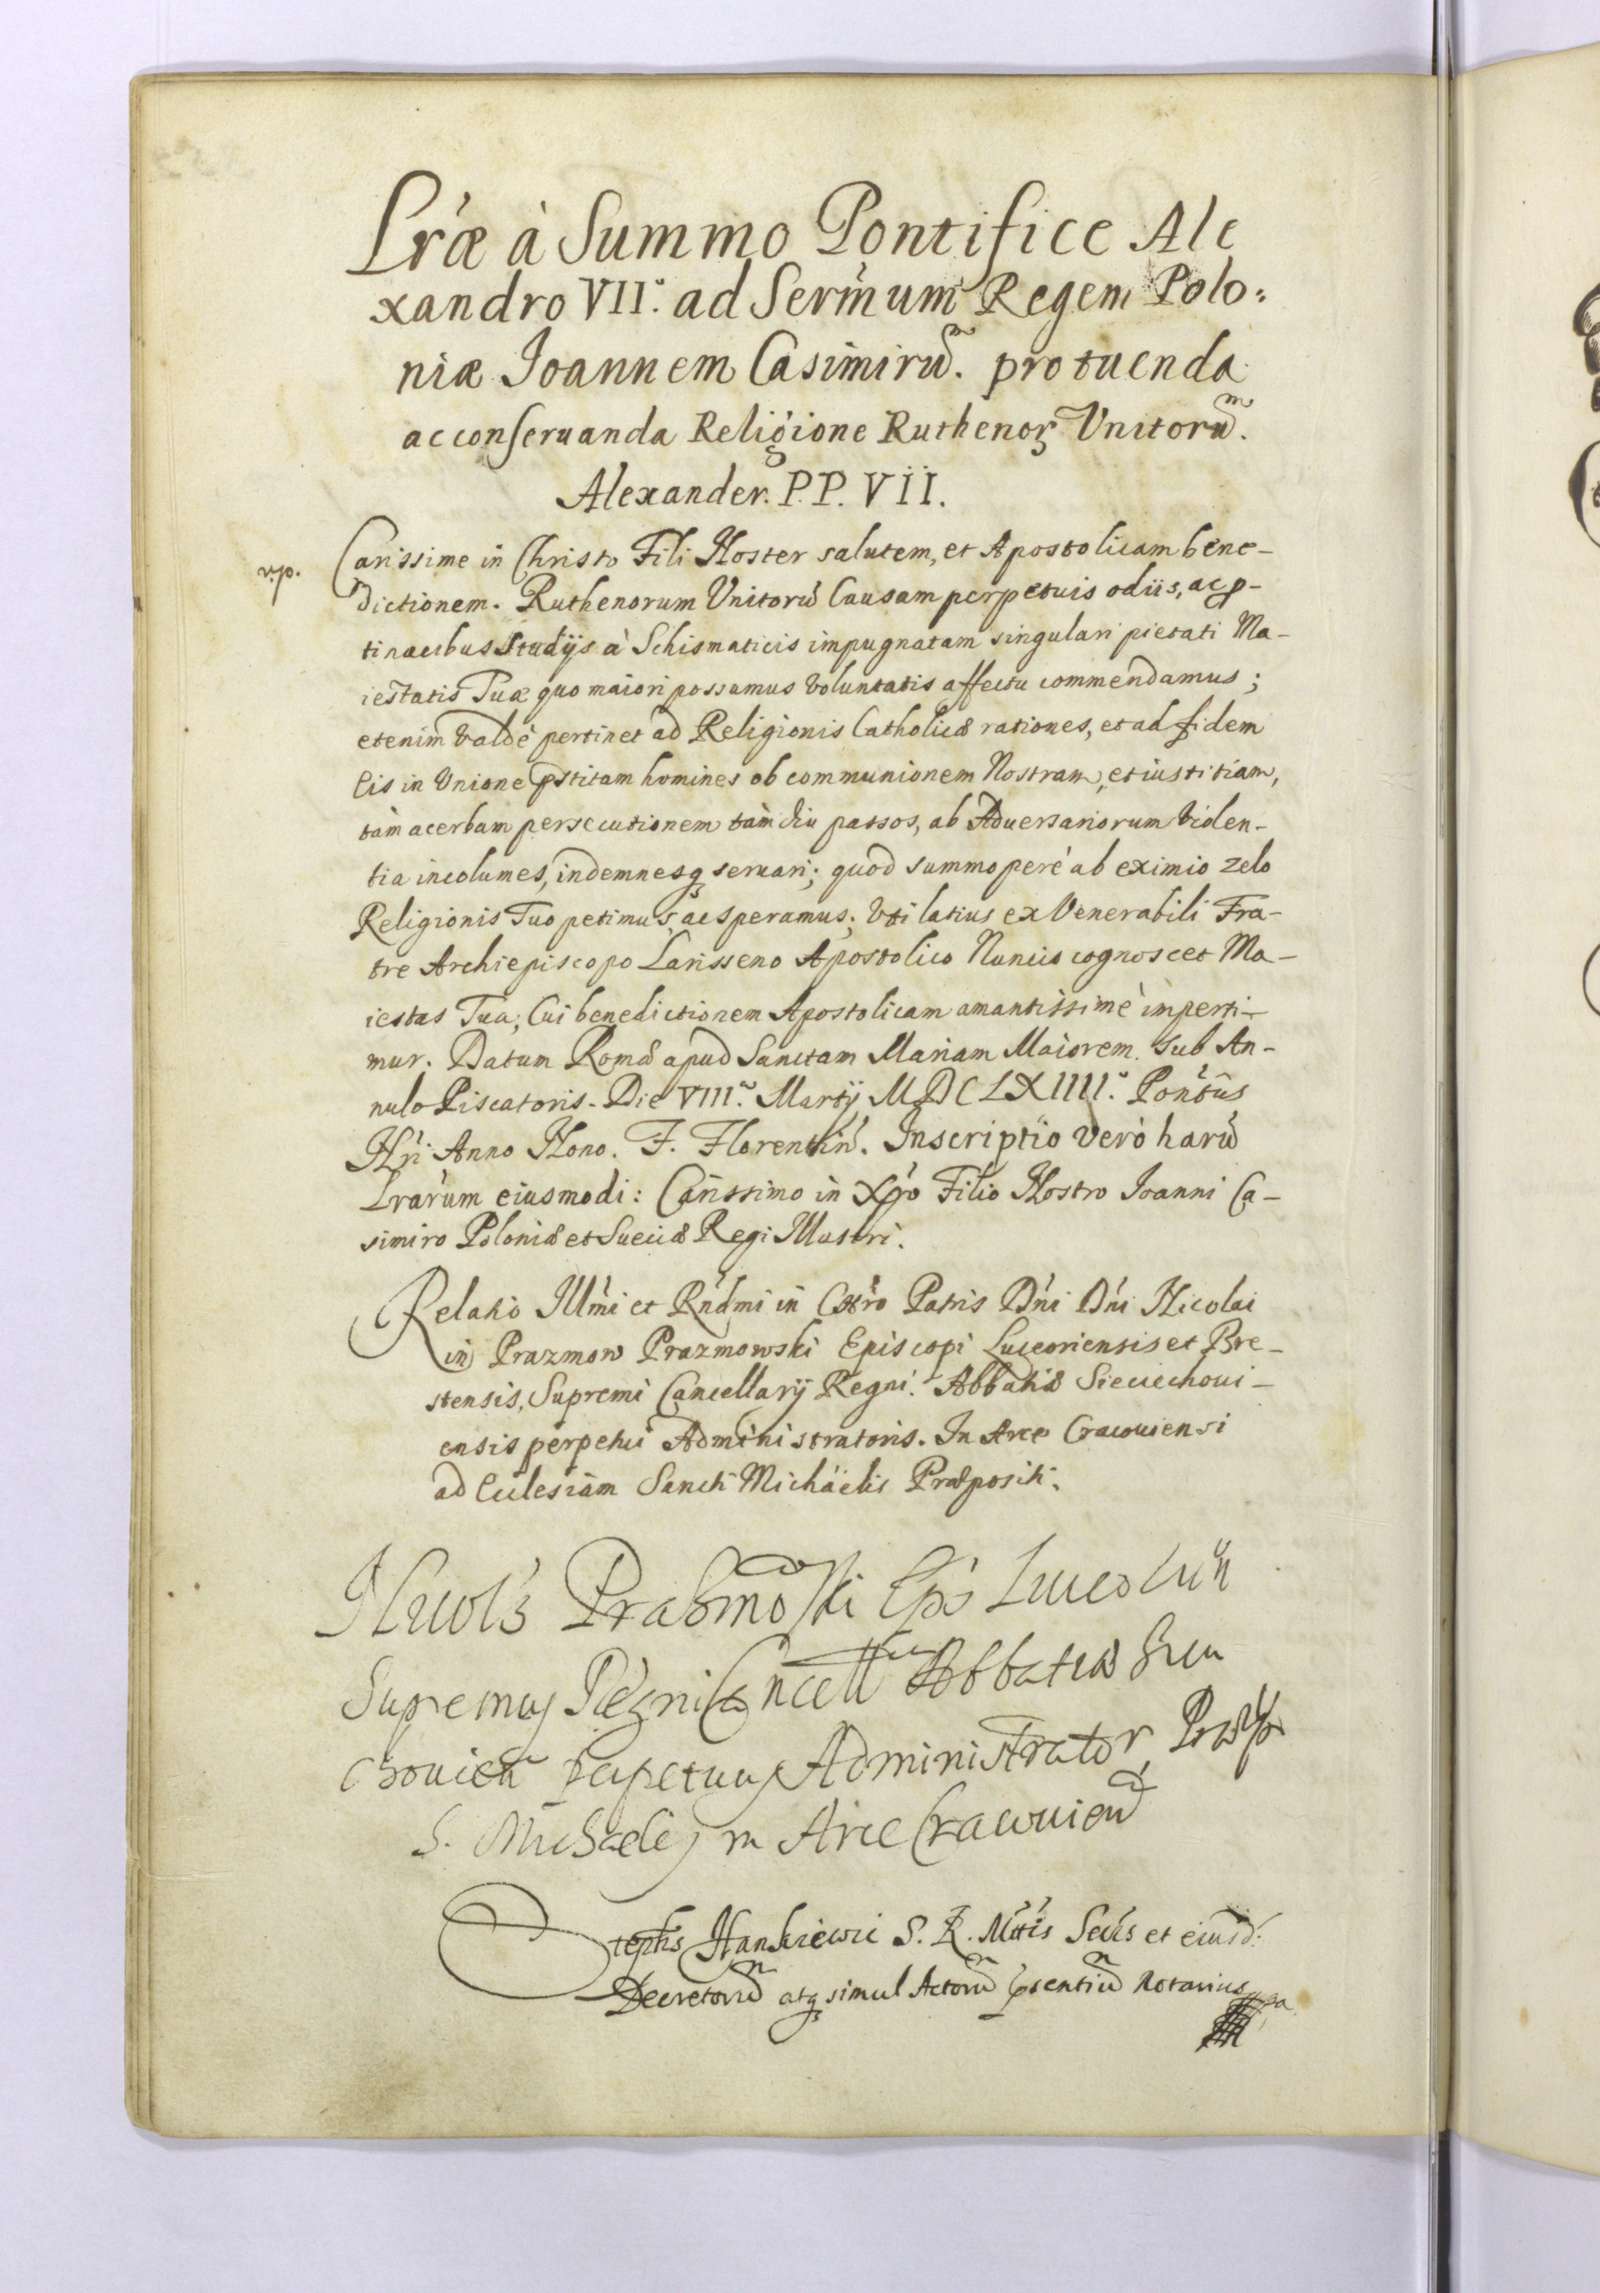 Lræ à Summo Pontifice Ale
xandro VII.° ad Sermum Regem Polo:
niæ Joannem Casimirũ. pro tuenda
ac conseruanda Religione Ruthenoꝝ Unitorũ.
Alexander. P.P. VII.
Carissime in Christo Fili Noster salutem, et Apostolicam bene-
v.p.
dictionem. Ruthenorum Unitorũ Causam perpetuis odiis, ac ꝑ-
tinacibus Studijs à Schismaticis impugnatam singulari pietati Ma-
iestatis Tuæ quo maiori possumus Voluntatis affectu commendamus;
etenim Valdè pertinet ad Religionis Catholicæ rationes, et ad fidem
Eis in Unione p̃stitam homines ob communionem Nostram, et iustitiam,
tàm acerbam persecutionem tàm diu passos, ab Aduersariorum Violen-
tia incolumes, indemnesqꝫ seruari; quod summoperè ab eximio zelo
Religionis Tuo petimus, ac speramus; Uti latius ex Venerabili Fra-
tre Archiepiscopo Larisseno Apostolico Nuncio cognoscet Ma-
iestas Tua; Cui benedictionem Apostolicam amantissimè imperti-
mur. Datum Romæ apud Sanctam Mariam Maiorem. Sub An-
nulo Piscatoris. Die VIII.ª Martij MDCLXIIII.° Pontũs
Nri Anno Nono. F. Florentin'. Inscriptio verò harũ
Lrarum eiusmodi: Carissimo in Xp̃o Filio Nostro Joanni Ca-
simiro Poloniæ et Sueciæ Regi Illustri.
Relatio Illm̃i et Rñdmi in Chr̃o Patris Dñi Dñi Nicolai
in Prazmow Prazmowski Episcopi Luceoriensis et Bre-
stensis, Supremi Cancellarij Regni. Abbatiæ Sieciechoui-
ensis perpetui Administratoris. In Arce Cracouiensi
ad Ecclesiam Sancti Michäelis Præpositi.
Prazmoski Eps
Supremus Regni Cancell Abbatiæ Siecie
chouień perpetuus Administrator, Præpo
S. Michaelis in Arce Cracouień
Stephs Hankiewic S. R. Mttis Secrs et eiusd:
Decretorũ atqꝫ simul Actorũ p̃sentiũ Notarius